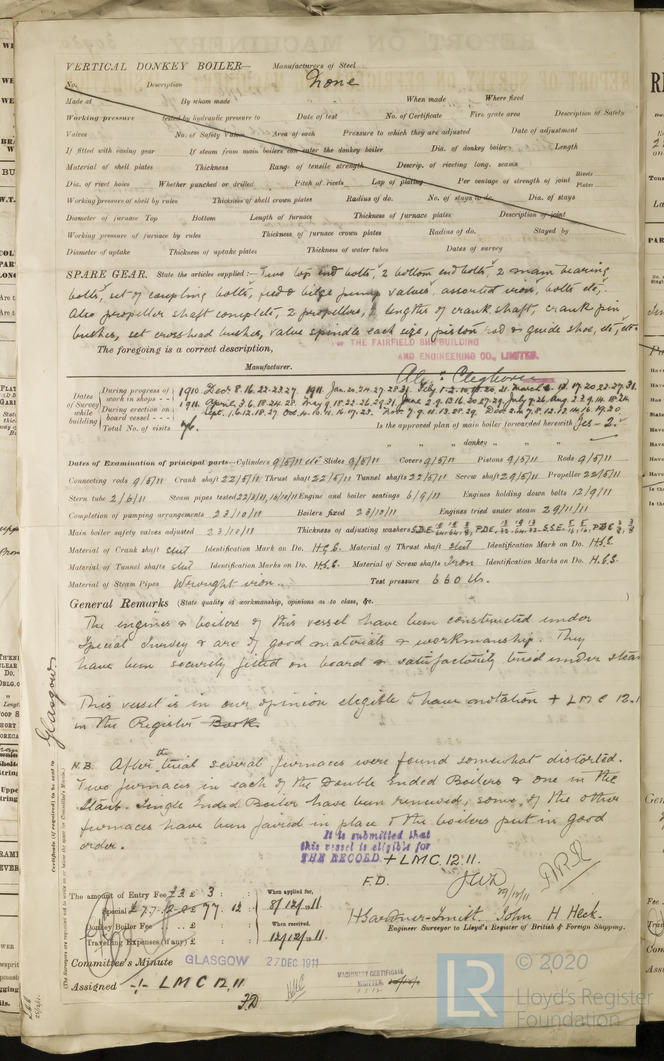 VERTICAL DONKEY BOILER— Manufacturers of Steel
No. Description None
Made at By whom made When made Where fixed
Working pressure tested by hydraulic pressure to Date of test No. of Certificate Fire grate area Description of Safety
Valves No. of Safety Valves Area of each Pressure to which they are adjusted Date of adjustment
If fitted with easing gear If steam from main boilers can enter the donkey boiler Dia. of donkey boiler Length
Material of shell plates Thickness Range of tensile strength Descrip. of riveting long. seams
Dia. of rivet holes Whether punched or drilled Pitch of rivets Lap of plating Per centage of strength of joint Rivets Plates
Working pressure of shell by rules Thickness of shell crown plates Radius of do. No. of stays to do. Dia. of stays
Diameter of furnace Top Bottom Length of furnace Thickness of furnace plates Description of joint
Working pressure of furnace by rules Thickness of furnace crown plates Radius of do. Stayed by
Diameter of uptake Thickness of uptake plates Thickness of water tubes Dates of survey
SPARE GEAR. State the articles supplied:— Two top end bolts, 2 bottom end bolts, 2 main bearing
bolts, set of coupling bolts, feed & bilge pump valves, assorted iron, bolts etc,
Also propeller shaft complete, 2 propellers, lengths of crank shaft, crank pin
bushes, set crosshead bushes, valve spindle each size, piston rod & guide shoe, etc, etc
The foregoing is a correct description,
THE FAIRFIELD SHIPBUILDING
AND ENGINEERING CO., LIMITED.
Manufacturer.
Alex: Cleghorn
Dates of Survey while building
During progress of work in shops - - 1910 Dec 8. 16. 22. 23. 27. 1911 Jan.
During erection on board vessel - - - 1911
Total No. of visits 76. Is the approved plan of main boiler forwarded herewith Yes - 2.
" " " donkey " " "
Dates of Examination of principal parts—Cylinders 9/5/11 etc Slides 9/5/11 Covers 9/5/11 Pistons 9/5/11 Rods 9/5/11
Connecting rods 9/5/11 Crank shaft 22/5/11 Thrust shaft 22/5/11 Tunnel shafts 22/5/11 Screw shaft 29/5/11 Propeller 22/5/11
Stern tube 2/6/11 Steam pipes tested 22/8/11, 16/10/11 Engine and boiler seatings 6/9/11 Engines holding down bolts 12/9/11
Completion of pumping arrangements 23/10/11 Boilers fixed 23/10/11 Engines tried under steam 29/11/11
Main boiler safety valves adjusted 23/10/11 Thickness of adjusting washers
Material of Crank shaft steel Identification Mark on Do. H.G.S. Material of Thrust shaft steel Identification Mark on Do. H.G.S.
Material of Tunnel shafts steel Identification Marks on Do. H.G.S. Material of Screw shafts Iron Identification Marks on Do. H.G.S.
Material of Steam Pipes Wrought iron Test pressure 660 lbs.
General Remarks (State quality of workmanship, opinions as to class, &c.
The engines & boilers of this vessel have been constructed under
Special Survey & are of good materials & workmanship. They
have been securely fitted on board & satisfactorily tried under steam
This vessel is in our opinion eligible to have notation + LMC 12.1
in the Register Book.
N.B. After the trial several furnaces were found somewhat distorted.
Two furnaces in each of the Double Ended Boilers & one in the
Starb. Single Ended Boiler have been renewed, some of the other
furnaces have been faired in place & the boilers put in good
order.
It is submitted that
this vessel is eligible for
THE RECORD. + LMC. 12.11.
F.D.
The amount of Entry Fee £ 3 : :
Special £ 77 : 12 :
Donkey Boiler Fee .. £ : :
Travelling Expenses (if any) £ : :
When applied for,
8/12/11
When received,
12/12/11.
H Gardner-Smith. John H. Heck.
Engineer Surveyor to Lloyd's Register of British & Foreign Shipping.
Committee's Minute GLASGOW 27 DEC 1911
Assigned + LMC 12,11
F.D
MACHINERY CERTIFICATE
WRITTEN
Glasgow
Certificate (if required) to be sent to
(The Surveyors are requested not to write on or below the space for Committee's Minute.)
LR
© 2020
Lloyd's Register
Foundation